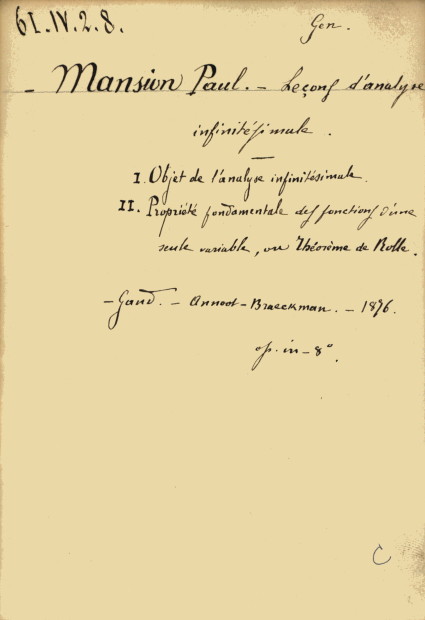 61.IV.2.8.
Gen.
- Mansion Paul. - Leçons d'analyse
infinitésimale.
I. Objet de l'analyse infinitésimale.
II. Propriété fondamentale des fonctions d'une
seule variable, ou Théorème de Rolle.
- Gand. - Annoot-Braeckman. - 1876.
op. in-8°.
C